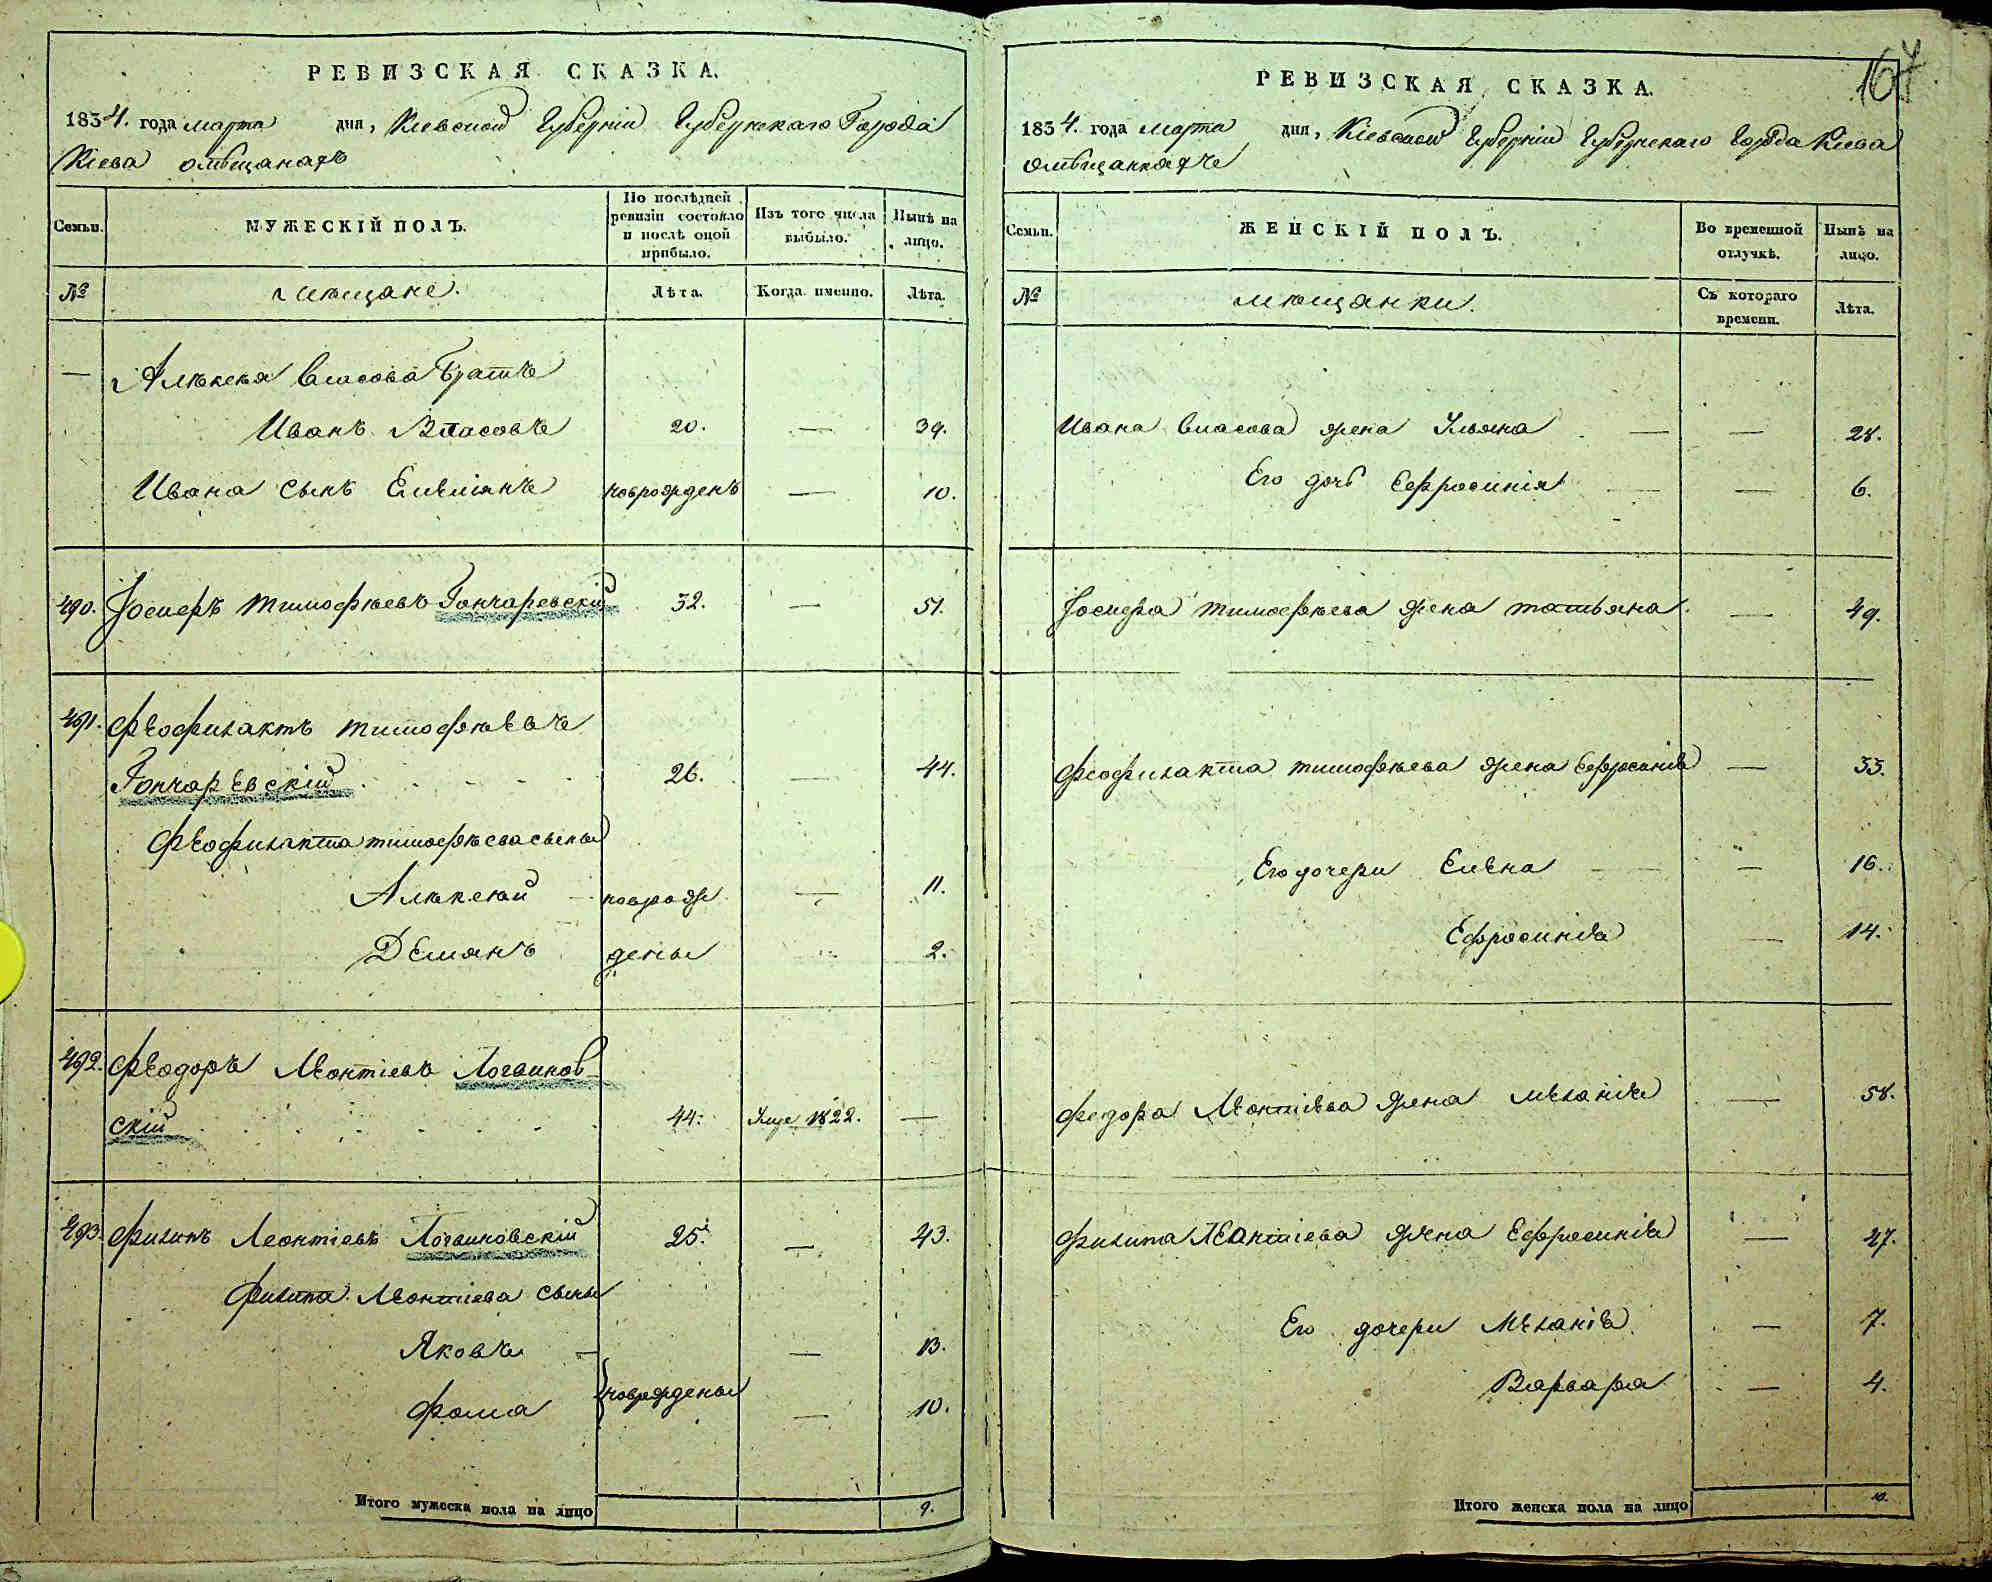 РЕВИЗСКАЯ СКАЗКА.
1834. года марта дня, Кіевской Губерніи Губернскаго Города
Кіева омѣщанахъ
Семьи.
МУЖЕСКІЙ ПОЛЪ.
По послѣдней ревизіи состояло и послѣ оной прибыло.
Изъ того числа выбыло.
Нынѣ на лицо.
№
мѣщане.
Лѣта.
Когда именно.
Лѣта.
— Алѣксѣя Власова братъ
Иванъ Власовъ 20. — 39.
Ивана сынъ Емѣліянъ новрожденъ — 10.
490. Іосифъ тимофѣевъ Гончаревскій 32. — 51.
491. Фѣофилактъ тимофѣѣвъ
Гончарѣвскій 26. — 44.
Фѣофилакта тимофѣева сыны
Алѣксѣй новрож — 11.
Дѣмянъ дены — 2.
492. Фѣодоръ Лѣонтіевъ Логвинов
скій 44. Умре 1822. —
493. Филипъ Леонтіевъ Логвиновскій 25. — 43.
Филипа Лѣонтіева сыны
Яковъ — 13.
Фома новрождены — 10.
Итого мужеска пола на лицо 9.
167
РЕВИЗСКАЯ СКАЗКА.
1834. года марта дня, Кіевской Губерніи Губернскаго Города Кіева
омѣщанкахъ
Семьи.
ЖЕНСКІЙ ПОЛЪ.
Во временной отлучкѣ.
Нынѣ на лицо.
№
мѣщанки.
Съ котораго времени.
Лѣта.
Ивана Власова жена Ульяна — 28.
Его дочь Ефросинія — 6.
Іосифа тимофѣева жена татьяна — 49.
Феофилакта тимофѣева жена Ефросинія — 33.
Его дочери Елѣна — 16.
Ефросинія — 14.
Федора Лѣонтіѣва жена Мѣланія — 58.
Филипа Лѣонтіева жѣна Ефросинія — 27.
Его дочери Мѣланія — 7.
Варвара — 4.
Итого женска пола на лицо 10.